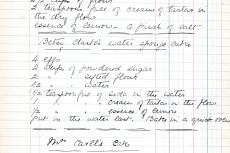 2 teaspoon fuls of cream of tartar in
the dry flour
essence of lemon - a pinch of salt.
Betsy Clark's water sponge cake
4 eggs
2 cups of powdered sugar
2 " sifted flour
1/2 " water
1/2 teaspoonful of soda in the water
1 " " cream of tartar in the flour
1/2 " essence of lemon
put in the water last. Bake in a quick oven
Mrs Cake